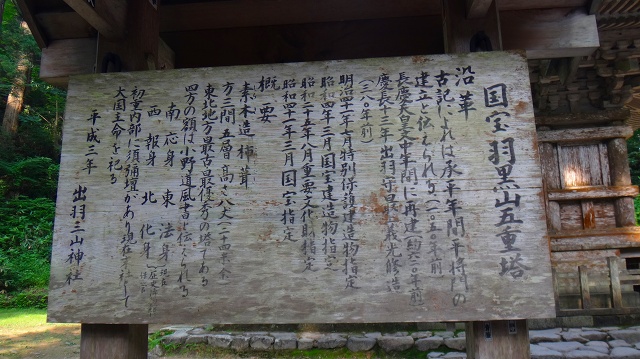 国宝羽黒山五重塔
沿革
古記によれば承平年間平将門の
建立と伝えられる(一〇五〇年前)
長慶天皇文中年間に再建(約六一〇年前)
慶長十三年出羽守最上義光修造
(三八〇年前)
明治四十一年七月特別保護建造物指定
昭和四年三月国宝建造物指定
昭和二十五年八月重要文化財指定
昭和四十一年三月国宝指定
概要
素木造杮葺
方三間五層高さ八丈(二十四米余)
東北地方最古最優秀の塔である
四方の額は小野道風書と伝えられる
南応身 東法身
西報身 北化身
初重内部に須弥壇があり現在末社として
大国主命を祀る
平成三年 出羽三山神社